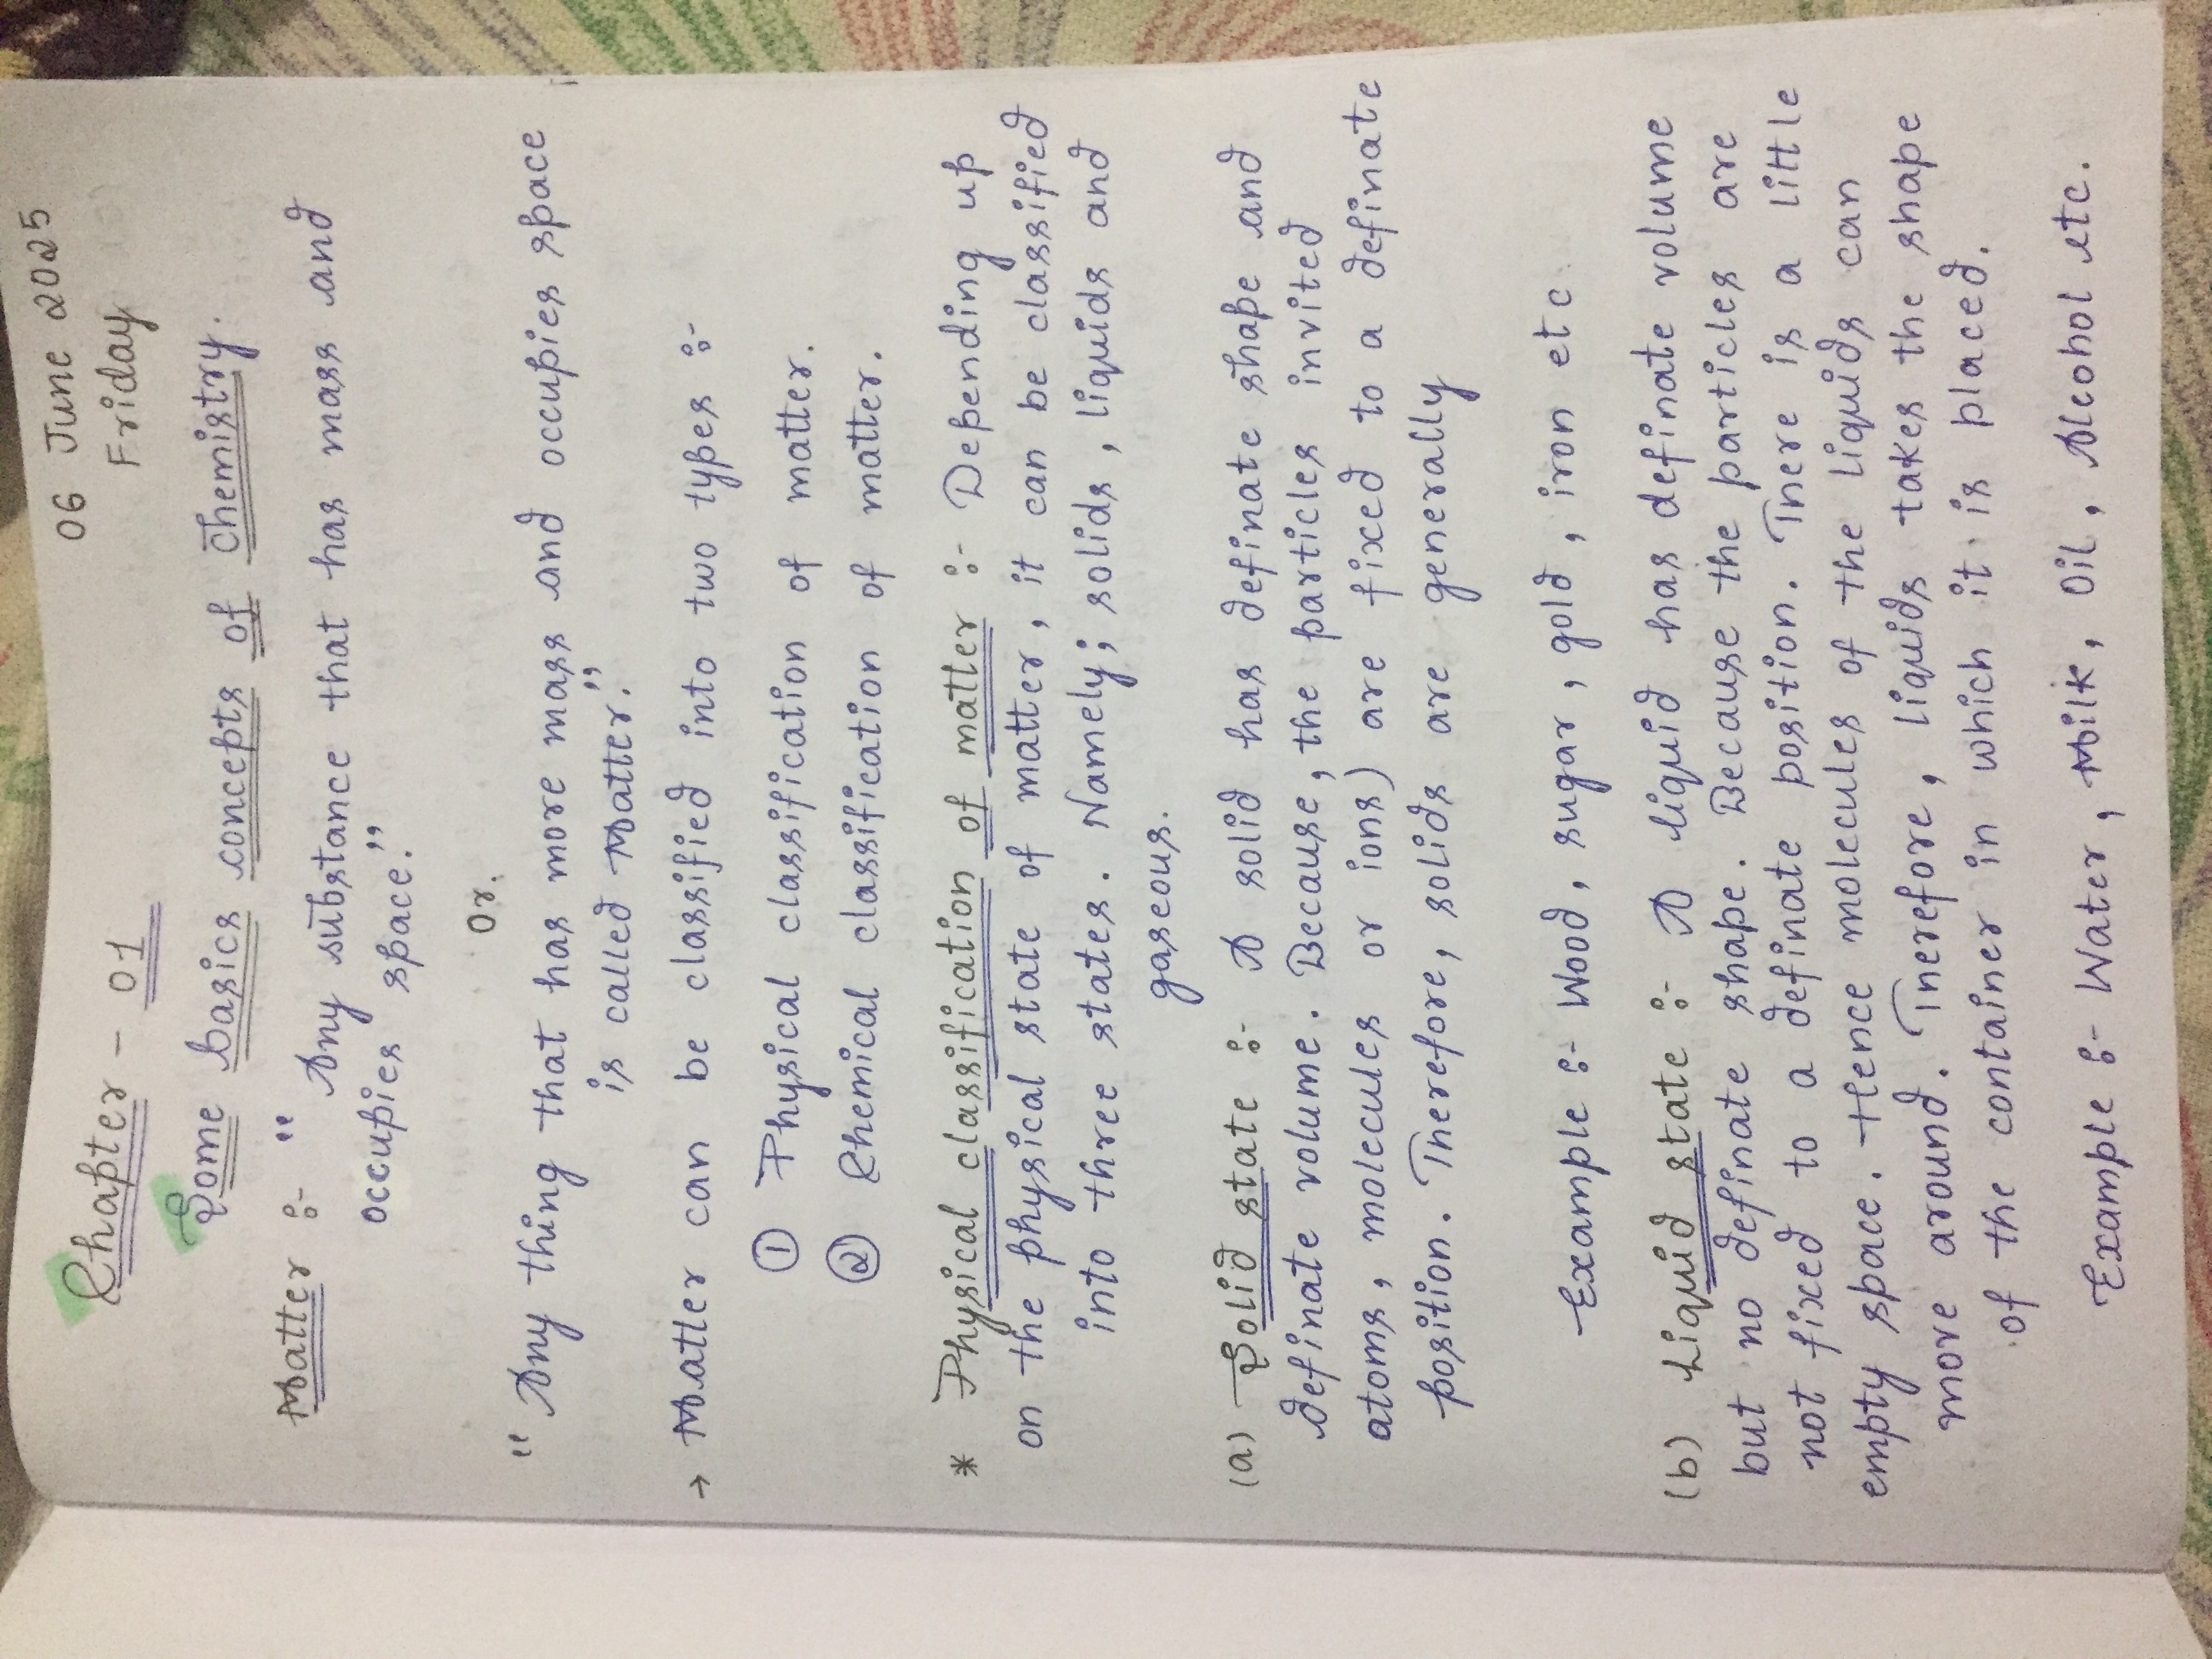 06 June 2025
Friday
Chapter - 01
Some basics concepts of Chemistry.
Matter :- " Any substance that has mass and
occupies space."
Or.
" Any thing that has more mass and occupies space
is called Matter."
→ Matter can be classified into two types :-
① Physical classification of matter.
② Chemical classification of matter.
* Physical classification of matter :- Depending up
on the physical state of matter, it can be classified
into three states. Namely; solids, liquids and
gaseous.
(a) Solid state :- A solid has definate shape and
definate volume. Because, the particles invited
atoms, molecules or ions) are fixed to a definate
position. Therefore, solids are generally
Example :- Wood, sugar, gold, iron etc
(b) Liquid state :- A liquid has definate volume
but no definate shape. Because the particles are
not fixed to a definate position. There is a little
empty space. Hence molecules of the liquids can
more around. Therefore, liquids takes the shape
of the container in which it is placed.
Example :- Water, Milk, Oil, Alcohol etc.